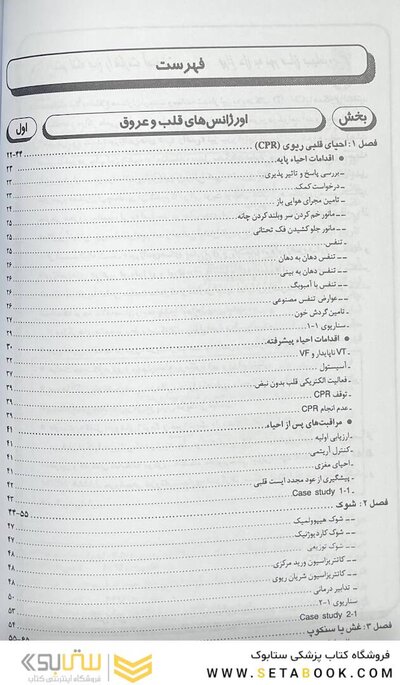 فهرست
بخش
اورژانس‌های قلب و عروق
اول
فصل ۱: احیای قلبی ریوی (CPR) ۲۲-۴۴
● اقدامات احیاء پایه. ۲۳
ـ بررسی پاسخ و تاثیر پذیری ۲۳
ـ درخواست کمک. ۲۳
ـ تامین مجرای هوایی باز ۲۴
ـ مانور خم کردن سر و بلند کردن چانه ۲۵
ـ مانور جلو کشیدن فک تحتانی ۲۵
ـ تنفس ۲۵
ـ ـ تنفس دهان به دهان ۲۶
ـ ـ تنفس دهان به بینی ۲۶
ـ ـ تنفس با آمبوبگ ۲۶
ـ ـ عوارض تنفس مصنوعی ۲۶
ـ تامین گردش خون ۲۷
ـ سناریوی ۱-۱ ۲۹
● اقدامات احیاء پیشرفته. ۳۰
ـ VT ناپایدار و VF
ـ آسیستول ۳۷
ـ فعالیت الکتریکی قلب بدون نبض ۳۹
ـ توقف CPR ۳۹
ـ عدم انجام CPR ۳۹
● مراقبت‌های پس از احیاء ۴۱
ـ ارزیابی اولیه ۴۱
ـ کنترل آریتمی ۴۱
ـ احیای مغزی ۴۱
ـ پیشگیری از عود مجدد ایست قلبی ۴۲
Case study 1-1 ۴۳
فصل ۲: شوک ۴۴-۵۵
ـ ـ شوک هیپوولمیک ۴۷
ـ ـ شوک کاردیوژنیک ۴۷
ـ ـ شوک توزیعی ۴۸
ـ ـ کانتریزاسیون ورید مرکزی ۴۸
ـ ـ کانتریزاسیون شریان ریوی ۴۸
ـ ـ تدابیر درمانی ۵۰
سناریوی ۱-۲ ۵۳
Case study 2-1 ۵۴
فصل ۳: غش یا سنکوپ
فروشگاه کتاب پزشکی ستابوک
WWW.SETABOOK.COM
ستابوک
فروشگاه اینترنتی کتاب